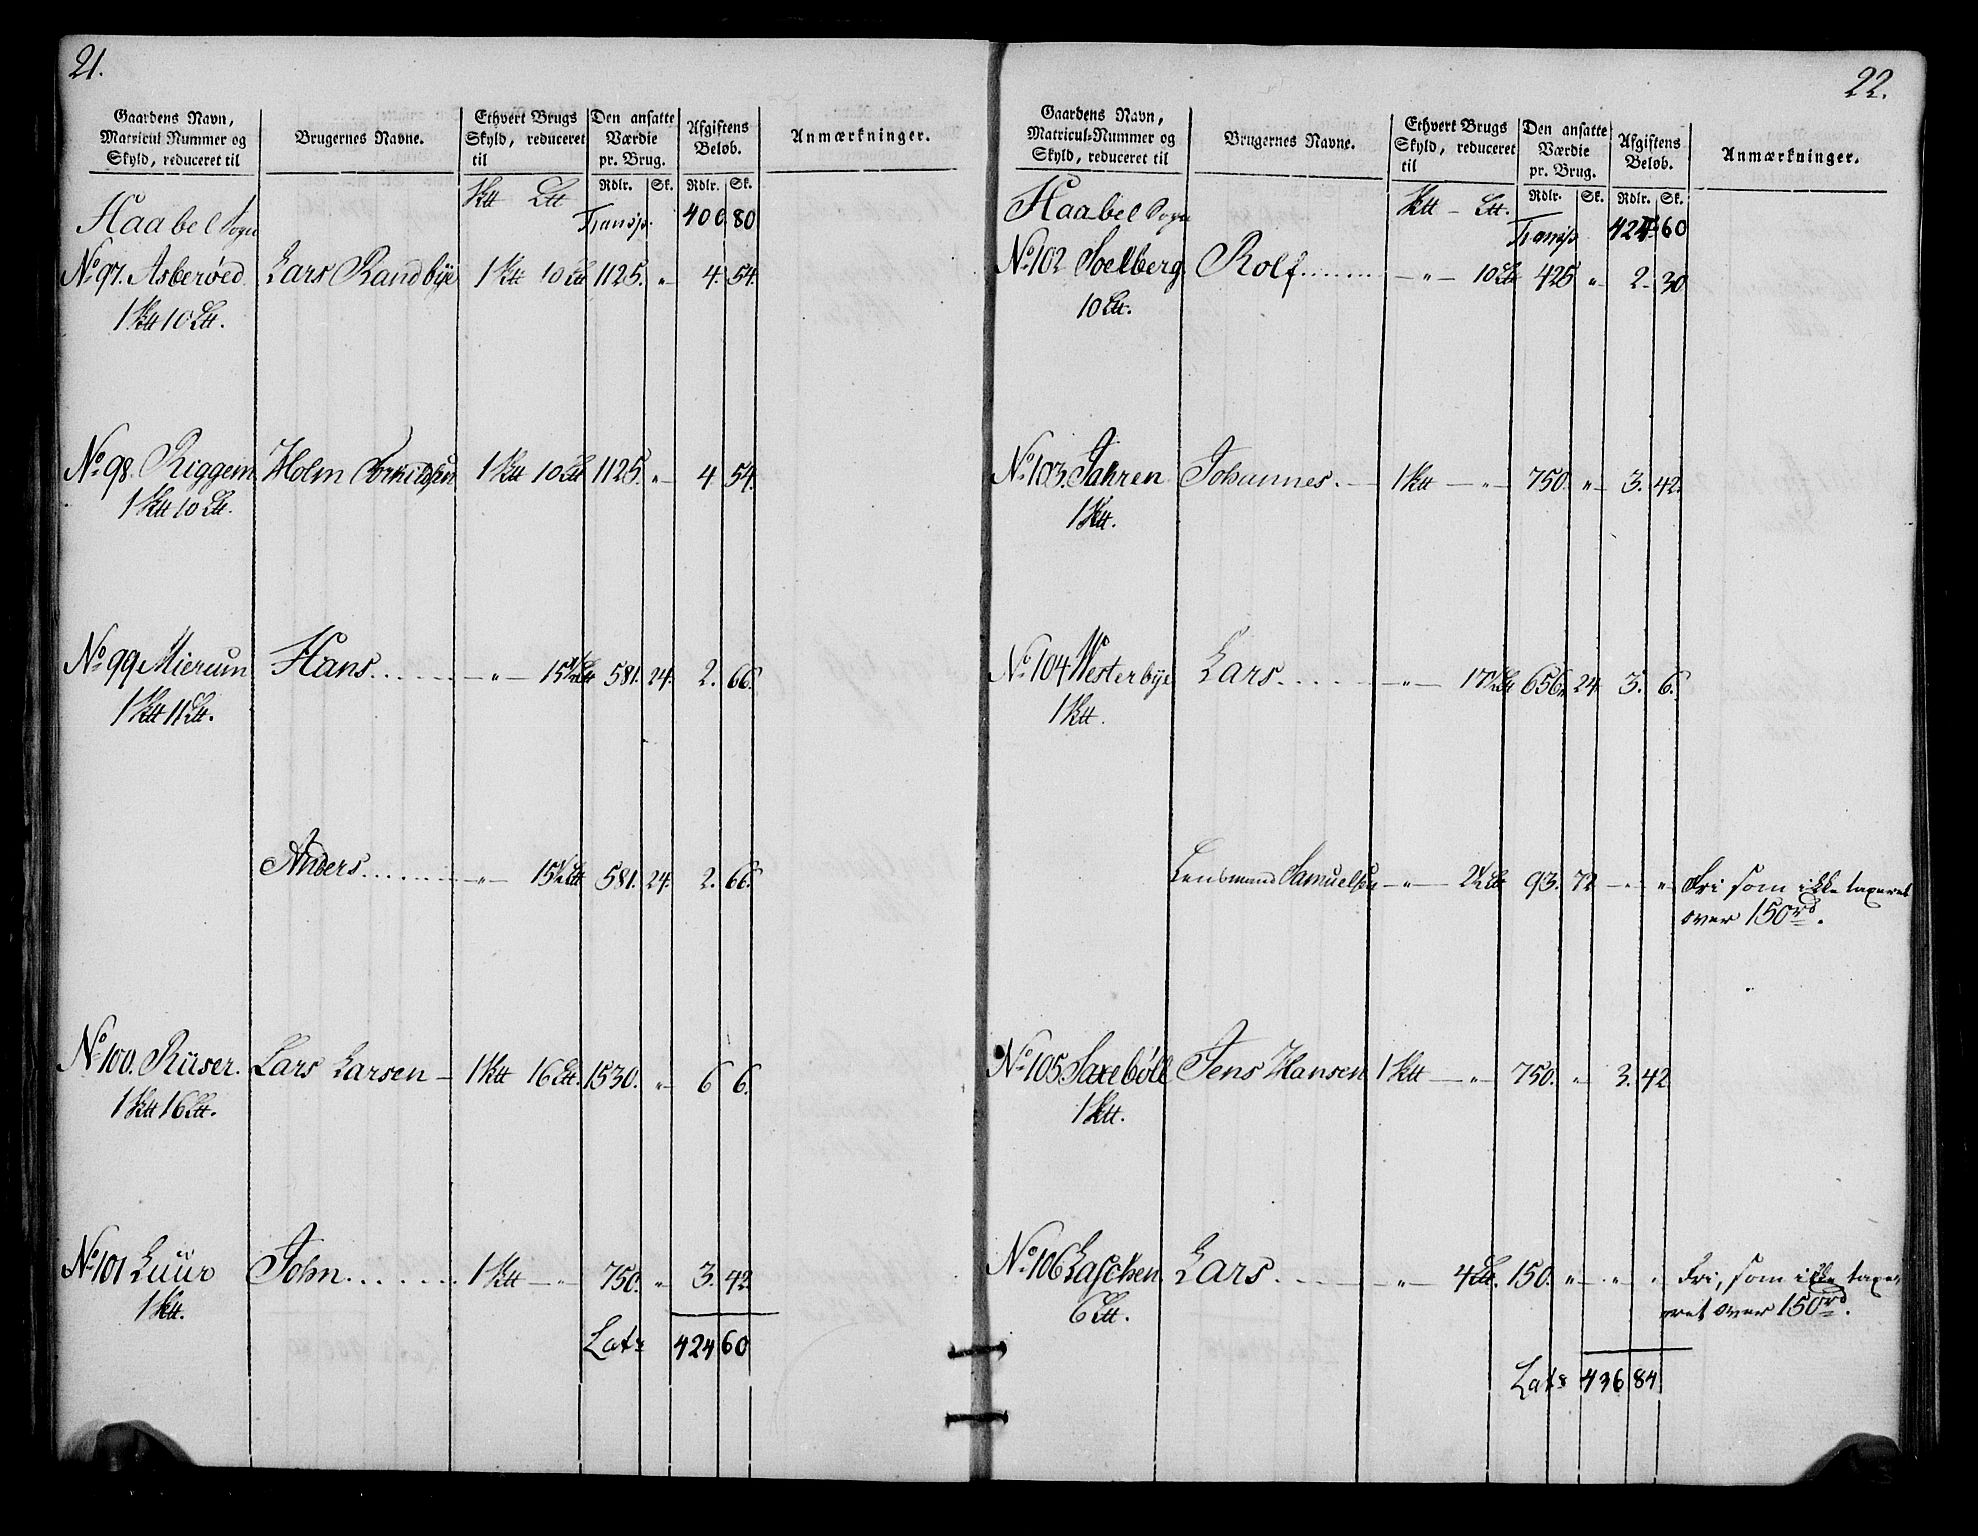 21.
Gaardens Navn, Matricul Nummer og Skyld, reduceret til | Brugernes Navne. | Ethvert Brugs Skyld, reduceret til | Den ansatte Værdie pr. Brug. | Afgiftens Beløb. | Anmærkninger.
Rdlr. | Sk. | Rdlr. | Sk.
Haabel Sogn | Transp. | 400 | 80
No 97. Asberøed | Lars Randbÿe | 1 10 | 1125. | " | 4. | 54.
1 10
No 98. Riggem | Holm Torkildsen | 1 10 | 1125. | " | 4 | 54.
1 10
No 99 Miereum | Hans | " 15½ | 581. | 24. | 2. | 66.
1 11
Anders | " 15½ | 581. | 24. | 2. | 66.
No 100. Riiser. | Lars Larsen | 1 16 | 1530. | " | 6 | 6.
1 16
No 101 Luur | John | 1 " | 750. | " | 3. | 42
1
Lats | 424 | 60
22.
Gaardens Navn, Matricul-Nummer og Skyld, reduceret til | Brugernes Navne. | Ethvert Brugs Skyld, reduceret til | Den ansatte Værdie pr. Brug. | Afgiftens Beløb. | Anmærkninger.
Rdlr. | Sk. | Rdlr. | Sk.
Haabel Sogn | Transp | 424 | 60
No 102 Soelberg | Rolf | " 10 | 425 | " | 2 | 30
10
No 103. Jahren | Johannes. | 1 " | 750. | " | 3. | 42.
1
No 104 Westerbÿe | Lars | " 17½ | 656 | 24 | 3. | 6.
1
Lensmand Samuelsen | " 2½ | 93. | 72 | " | " | Fri som ikke taxeret
over 150rd.
No 105. Saxebøll | Jens Hansen | 1 " | 750. | " | 3. | 42
1
No 106 Laschen. | Lars | " 4 | 150. | " | " | " | Fri, som ikke taxe-
ret over 150rd.
6
Lats | 436 | 84